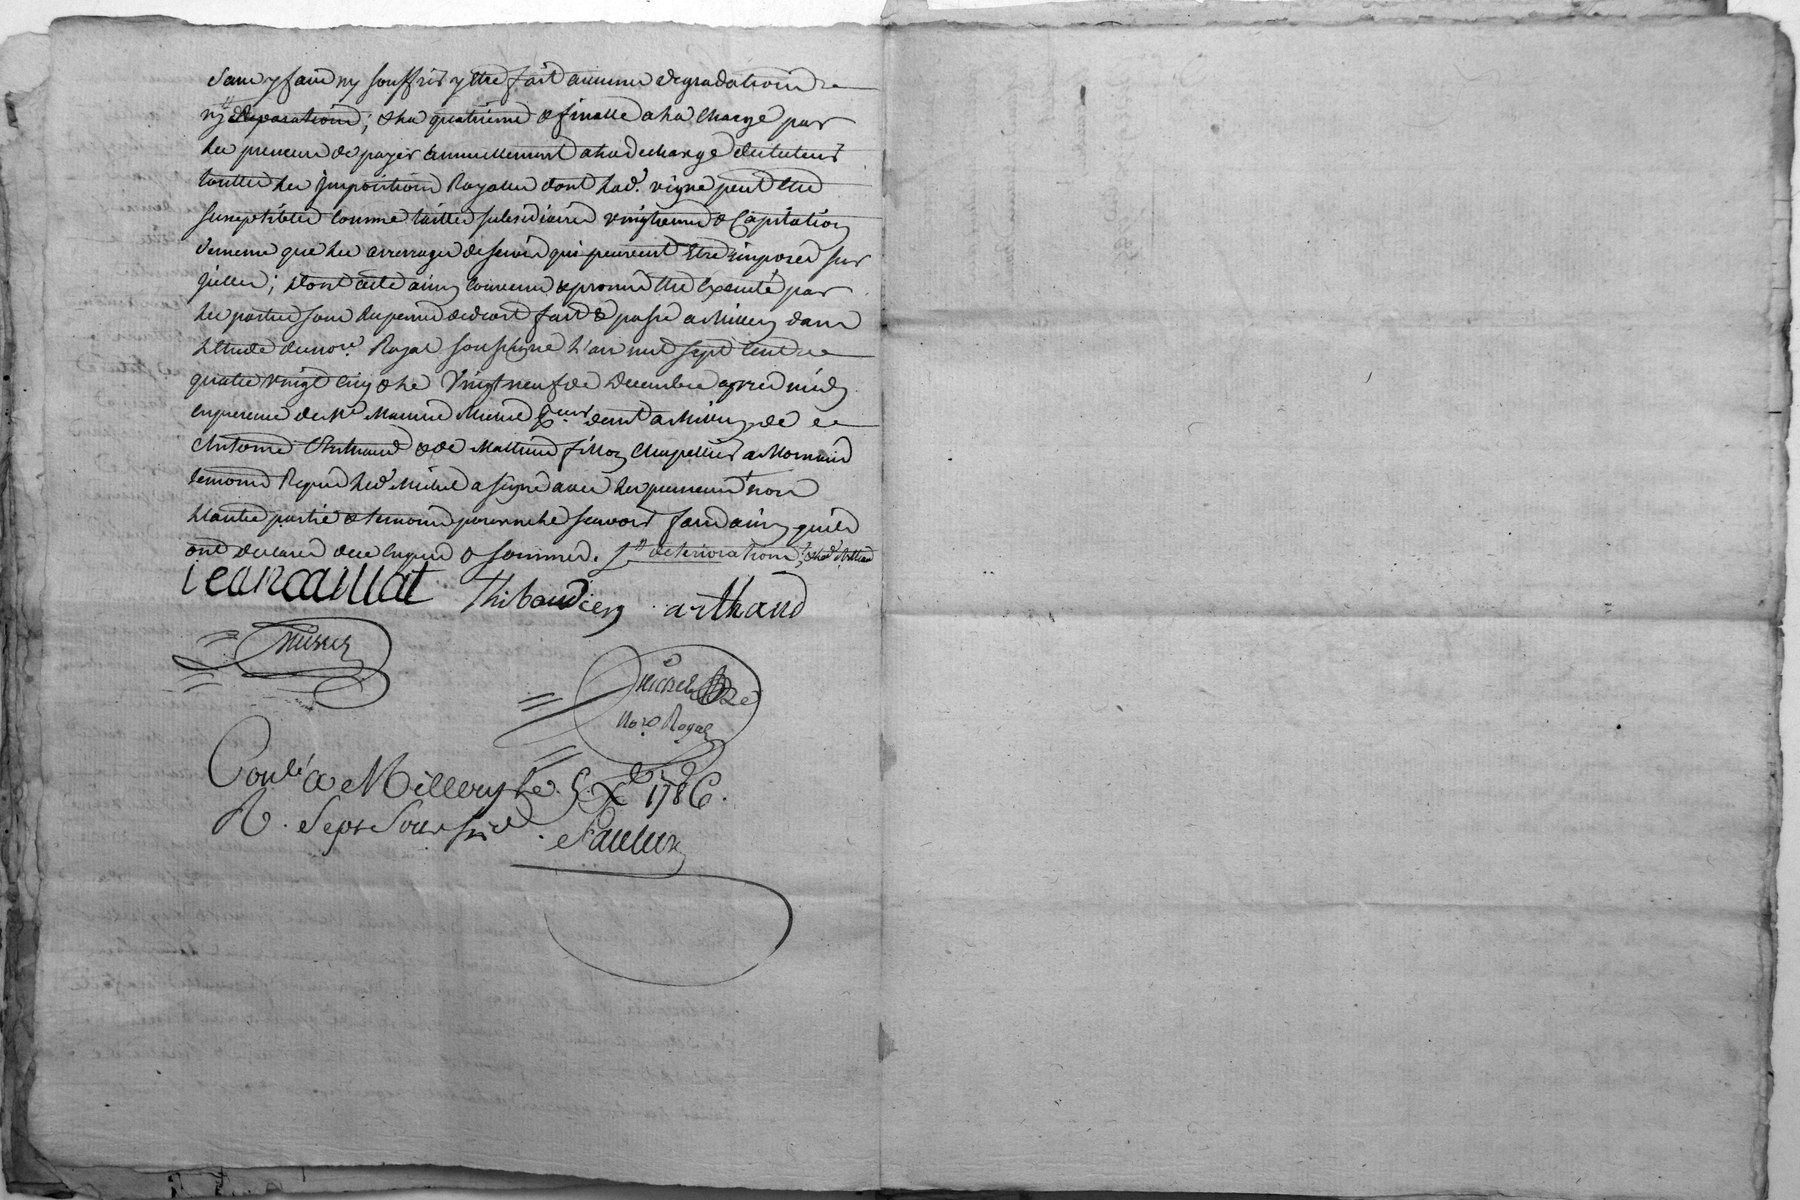 sans y faire ny souffrir y être fait aucune degradation
ny reparations; & la quatrieme & finalle a la charge par
les preneurs de payer annuellement a la decharge
touttes les impositions Royalles dont lad. vigne peut être
susceptibles comme tailles subsidiaires vingtiemes & Capitation
dememe que les arrerages de servis qui peuvent être imposés sur
icelle; dont acte ainsy convenu & promis être executé par
les parties sous les peines de droit fait & passé a Millery dans
l'etude du nore. Royal soussigné l'an mil sept cent
quatre vingt cinq & le vingt neuf de Decembre apres midy
en presence de Me Maurice Michel demt a Millery, de
Antoine Arthaud & de Mathieu fillon Chapelliers a Mornand
temoins Requis led. Michel a signé avec les preneurs non
l'autre partie & temoin pour ne le scavoir faire ainsy quils
ont declarés de ce enquis & sommés. deteriorations, & led. Arthaud
jean caillat Thibaudier arthaud
Michel
Michel
Nore Royal
Conlé a Millery le 5 1786.
R. Sept Sous six d.